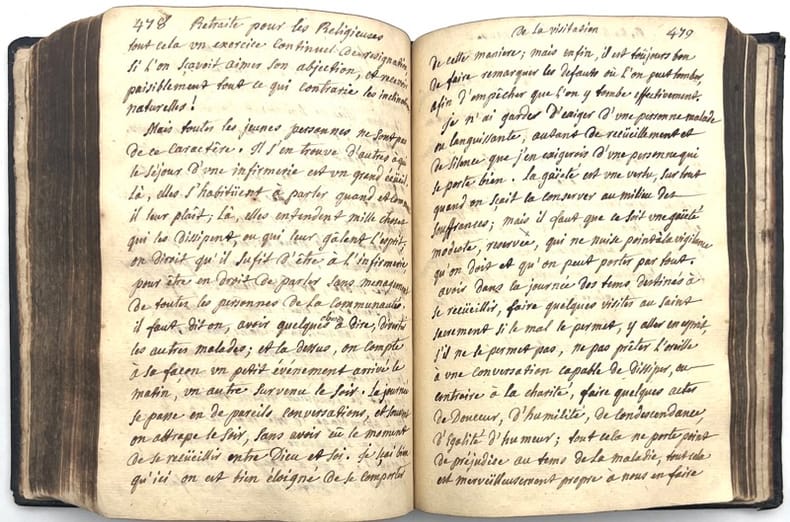 478 Retraite pour les Religieuses
tout cela vn exercice continuel de resignation,
si l'on sçavoit aimer son abjection, et recevoir
paisiblement tout ce qui contrarie les inclinations
naturelles!
Mais toutes les jeunes personnes ne sont pas
de ce caractère. Il s'en trouve d'autres à qui
le séjour d'vne infirmerie est vn grand écüeil.
Là, elles s'habitüent à parler quand et comme
il leur plait; Là, elles entendent mille choses
qui les dissipent, ou qui leur gâtent l'esprit,
on diroit qu'il sufit d'être à l'infirmerie
pour être en droit de parler sans menagement
de toutes les personnes de la communauté.
il faut dit on, avoir quelques choses à dire, divertir
les autres malades; et la dessus, on compte
à sa façon vn petit événement arrivé le
matin, vn autre survenu le soir. La journée
se passe en de pareils conversations, et souvent
on attrape le soir, sans avoir eû le moment
de se recüeillir entre Dieu et soi. Je sçai bien
qu'ici on est bien éloigné de se comporter
De la visitation 479
de cette maniere; mais enfin, il est toujours bon
de faire remarquer les defauts où l'on peut tomber,
afin d'empêcher que l'on y tombe effectivement.
Je n'ai gardes d'exiger d'vne personne malade
ou languissante, autant de recüeillement et
de silence que j'en exigerois d'vne personne qui
se porte bien. La gaieté est vne vertu, sur tout
quand on sçait la conserver au milieu des
souffrances; mais il faut que ce soit vne gaieté
modeste, reservée, qui ne nuise point à la vigilance
qu'on doit et qu'on peut porter par tout.
avoir dans la journée des tems destinés à
se recüeillir, faire quelques visites au saint
sacrement si le mal le permet, y aller en esprit,
s'il ne le permet pas, ne pas prêter l'oreille
à vne conversation capable de dissiper, ou
contraire à la charité, faire quelques actes
de Douceur, d'humilité, de condescendance,
d'égalité d'humeur; tout cela ne porte point
de préjudice au tems de la maladie, tout cela
est merveilleusement propre à nous en faire